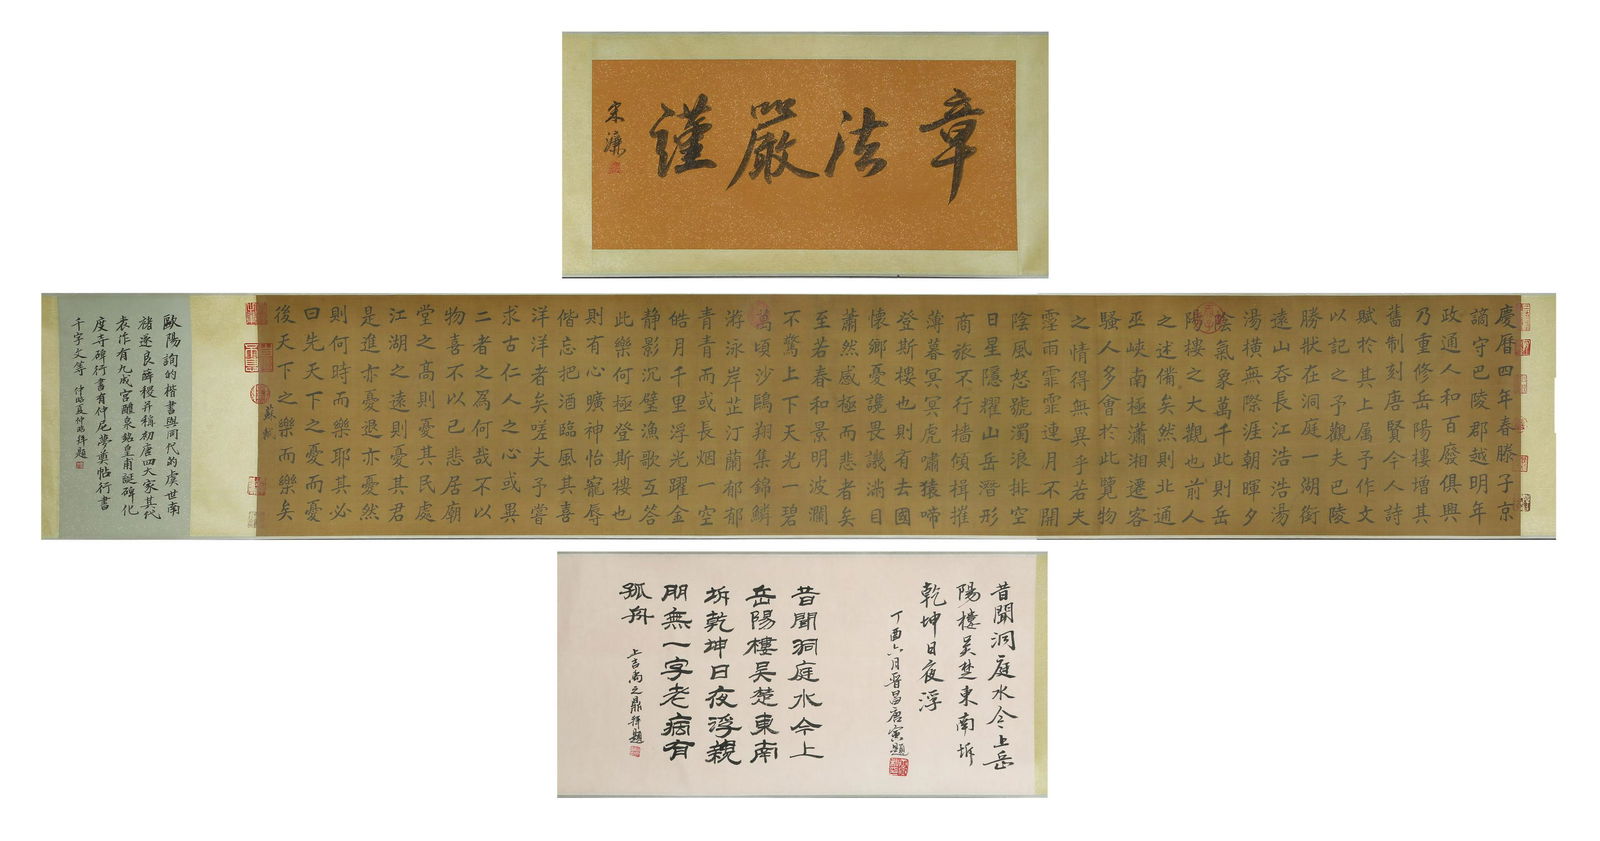 章法嚴謹
宋濂
慶曆四年春滕子京
謫守巴陵郡越明年
政通人和百廢俱興
乃重修岳陽樓增其
舊制刻唐賢今人詩
賦於其上属予作文
以記之予觀夫巴陵
勝狀在洞庭一湖銜
遠山吞長江浩浩湯
湯橫無際涯朝暉夕
陰氣象萬千此則岳
陽樓之大觀也前人
之述備矣然則北通
巫峽南極瀟湘遷客
騷人多會於此覽物
之情得無異乎若夫
霪雨霏霏連月不開
陰風怒號濁浪排空
日星隱耀山岳潛形
商旅不行檣傾楫摧
薄暮冥冥虎嘯猿啼
登斯樓也則有去國
懷鄉憂讒畏譏滿目
蕭然感極而悲者矣
至若春和景明波瀾
不驚上下天光一碧
萬頃沙鷗翔集錦鱗
游泳岸芷汀蘭郁郁
青青而或長烟一空
皓月千里浮光躍金
静影沉璧漁歌互答
此樂何極登斯樓也
則有心曠神怡寵辱
偕忘把酒臨風其喜
洋洋者矣嗟夫予嘗
求古仁人之心或異
二者之為何哉不以
物喜不以己悲居廟
堂之高則憂其民處
江湖之遠則憂其君
是進亦憂退亦憂然
則何時而樂耶其必
曰先天下之憂而憂
後天下之樂而樂矣
蘇軾
歐陽詢的楷書與同代的虞世南
褚遂良薛稷并稱初唐四大家其代
表作有九成宮醴泉銘皇甫誕碑化
度寺碑行書有仲尼夢奠帖行書
千字文等 仲昭夏㫤拜題
昔聞洞庭水今上岳
陽樓吴楚東南坼
乾坤日夜浮
丁酉六月晋昌唐寅題
昔聞洞庭水今上
岳陽樓吴楚東南
坼乾坤日夜浮親
朋無一字老病有
孤舟 上吉禹之鼎拜題